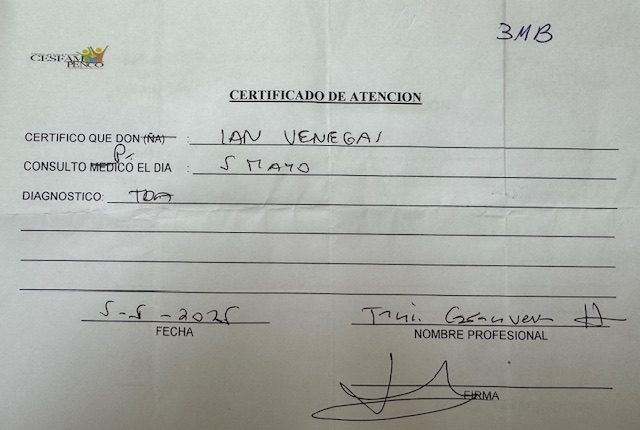 3MB
CESFAM
PENCO
CERTIFICADO DE ATENCION
CERTIFICO QUE DON (ÑA) : IAN VENEGAS
P.
CONSULTO MEDICO EL DIA : 5 MAYO
DIAGNOSTICO: TDA
5-5-2025
FECHA
NOMBRE PROFESIONAL
FIRMA